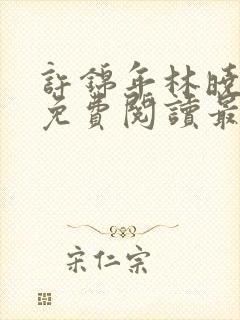 許錦年林曉
免費閱讀最
宋仁宗